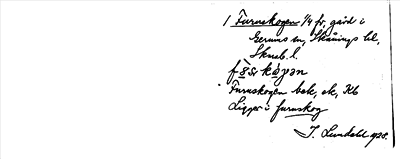 1 Furuskogen 1/4 fr, gård i
Gerums sn, Skånings hd,
Skarab. l.
Furuskogen bek, ek, Kb
Ligger i furuskog
I. Lundahl